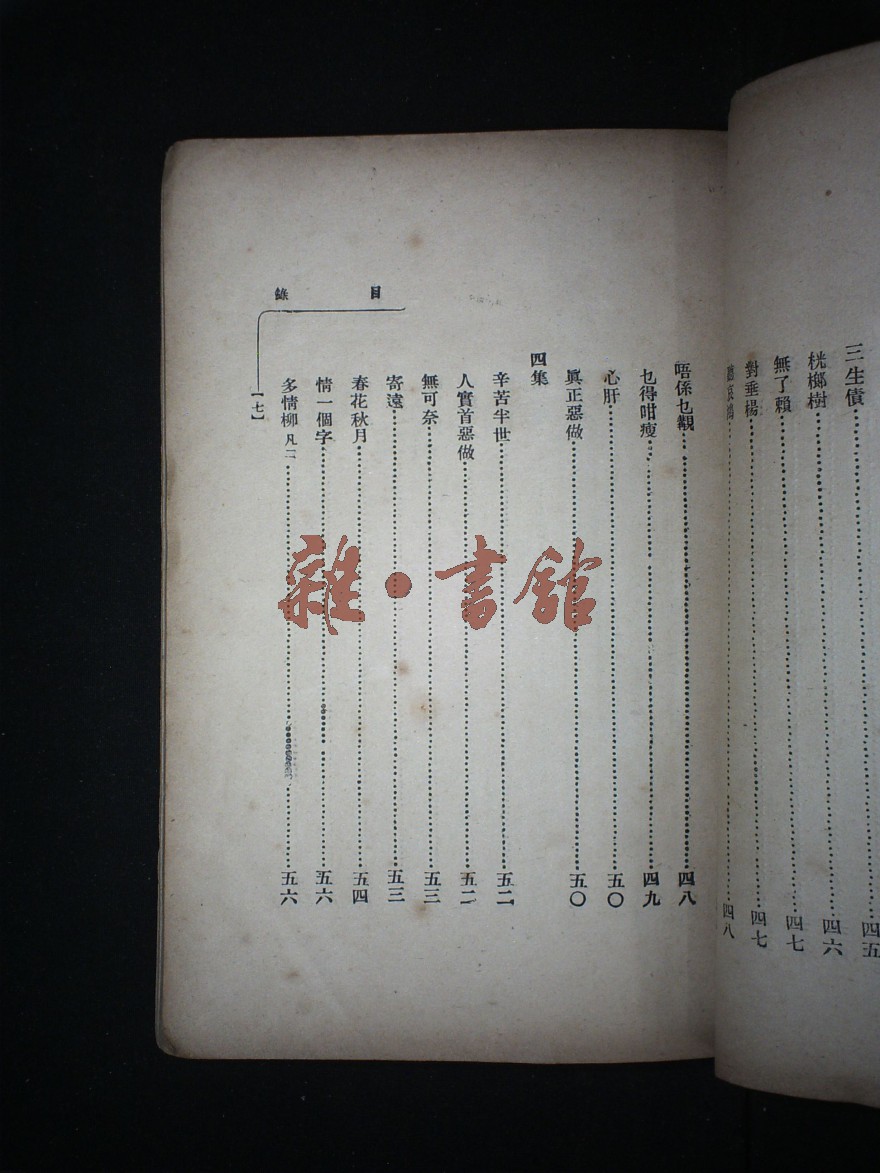 三生債……四五
桄榔樹……四六
無了賴……四七
對垂楊……四七
聽哀鴻……四八
唔係乜靚……四八
乜得咁瘦……四九
心肝……五〇
眞正惡做……五〇
四集
辛苦半世……五二
人實首惡做……五二
無可奈……五三
寄遠……五三
春花秋月……五四
情一個字……五六
多情柳 凡二……五六
目錄
【七】
雜·書館